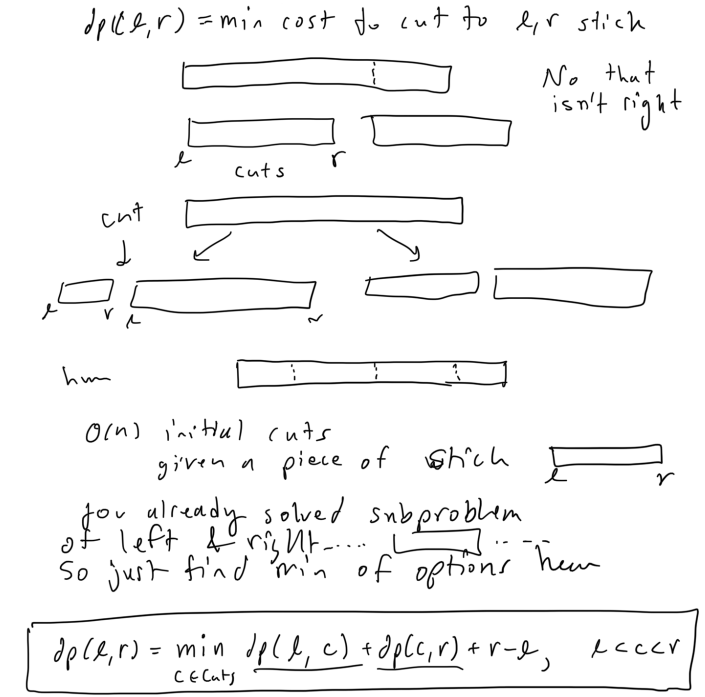 dp(l,r) = min cost to cut to l,r stick
No that
isn't right
l r
cuts
cut
l r l r
hm
O(n) initial cuts
given a piece of stick
l r
you already solved subproblem
of left & right....
So just find min of options hm
dp(l,r) = min dp(l,c) + dp(c,r) + r-l, l<c<r
c∈cuts